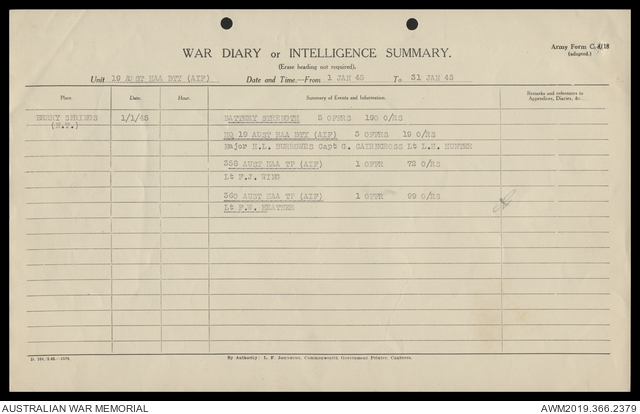 Army Form C. /18
(adapted.)
WAR DIARY or INTELLIGENCE SUMMARY.
(Erase heading not required).
Unit 19 AUST HAA BTY (AIF) Date and Time.—From 1 JAN 45 To 31 JAN 45
Place. Date. Hour. Summary of Events and Information. Remarks and references to Appendices, Diaries, &c.
BERRY SPRINGS 1/1/45 BATTERY STRENGTH 5 OFFRS 190 O/RS
(N.T.)
HQ 19 AUST HAA BTY (AIF) 3 OFFRS 19 O/RS
Major H.L. BURROWES Capt G. CAIRNCROSS Lt L.H. HUNTER
358 AUST HAA TP (AIF) 1 OFFR 72 O/RS
Lt F.J. WING
360 AUST HAA TP (AIF) 1 OFFR 99 O/RS
Lt F.W.
By Authority: L. F. Johnston, Commonwealth Government Printer, Canberra.
AUSTRALIAN WAR MEMORIAL AWM2019.366.2379